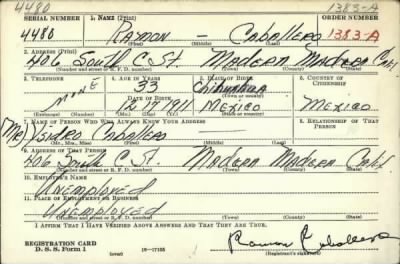 4480 1383-A
SERIAL NUMBER 1. NAME (Print) ORDER NUMBER
4480 RAMON – Caballero 1383-A
(First) (Middle) (Last)
2. ADDRESS (Print)
406 South C St. Madera Madera Cal.
(Number and street or R. F. D. number) (Town) (County) (State)
3. TELEPHONE 4. AGE IN YEARS 5. PLACE OF BIRTH 6. COUNTRY OF CITIZENSHIP
33 Chihuahua
NONE DATE OF BIRTH
1911 Mexico Mexico
(Exchange) (Number) (Mo.) (Day) (Yr.) (State or country)
7. NAME OF PERSON WHO WILL ALWAYS KNOW YOUR ADDRESS 8. RELATIONSHIP OF THAT PERSON
Mr. Ysidro Caballero —
(Mr., Mrs., Miss) (First) (Middle) (Last)
9. ADDRESS OF THAT PERSON
406 South C St. Madera Madera Calif.
(Number and street or R. F. D. number) (Town) (County) (State)
10. EMPLOYER'S NAME
Unemployed
11. PLACE OF EMPLOYMENT OR BUSINESS
Unemployed
(Number and street or R. F. D. number) (Town) (County) (State)
I AFFIRM THAT I HAVE VERIFIED ABOVE ANSWERS AND THAT THEY ARE TRUE.
REGISTRATION CARD
D. S. S. Form 1 (over) Ramon Caballero
(Registrant's signature)